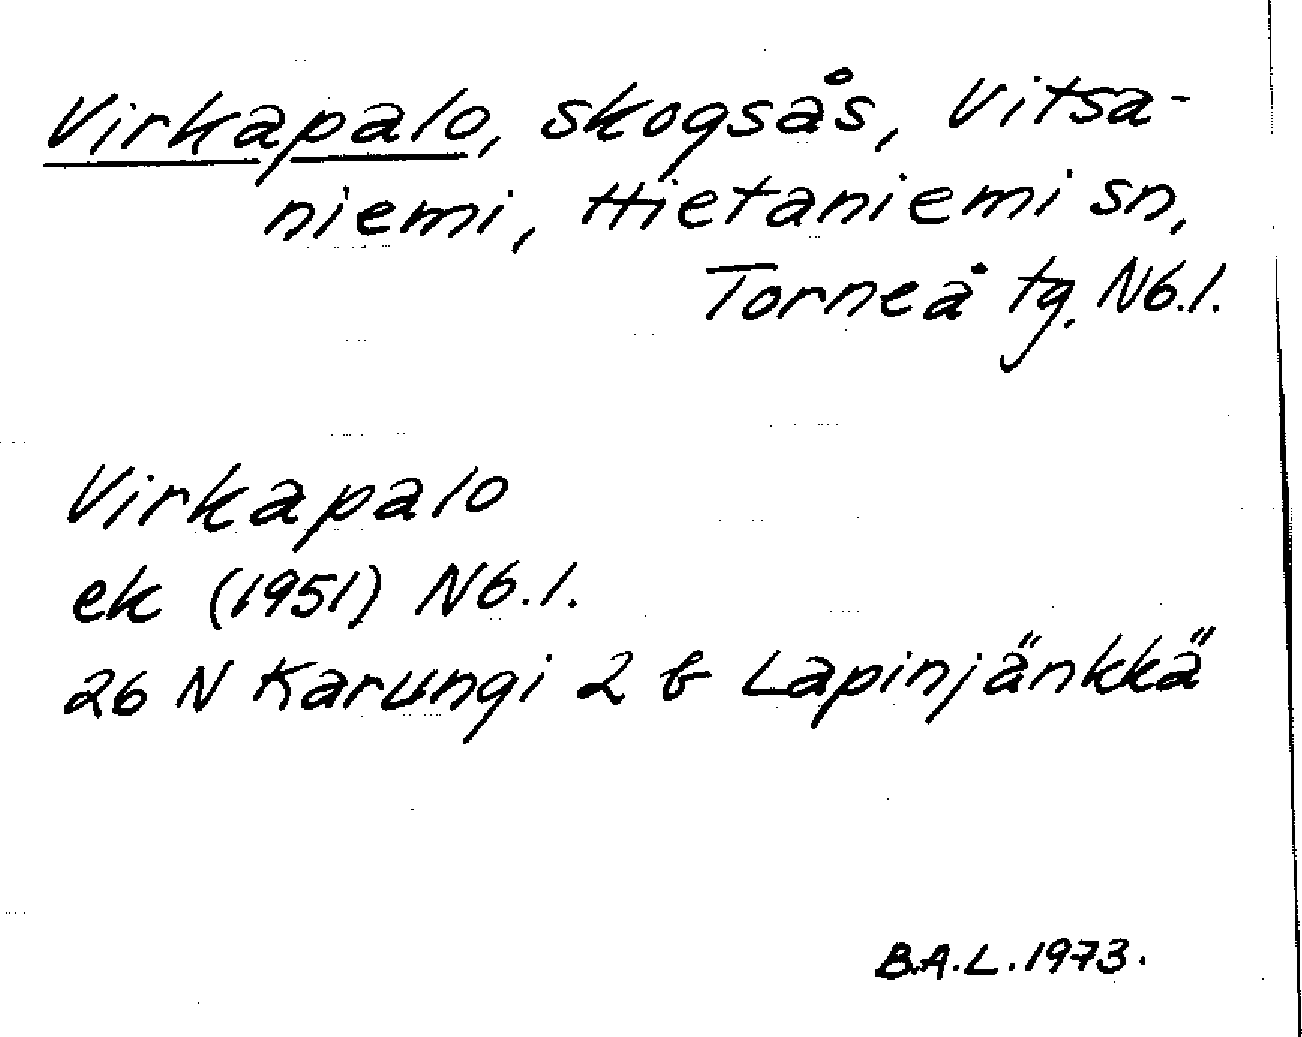 Virkapalo, skogsås, Vitsa-
niemi, Hietaniemi sn,
Torneå tg. Nb.l.
Virkapalo
ek (1951) Nb.l.
26 N Karungi 2 b Lapinjänkkä
B.A.L. 1973.